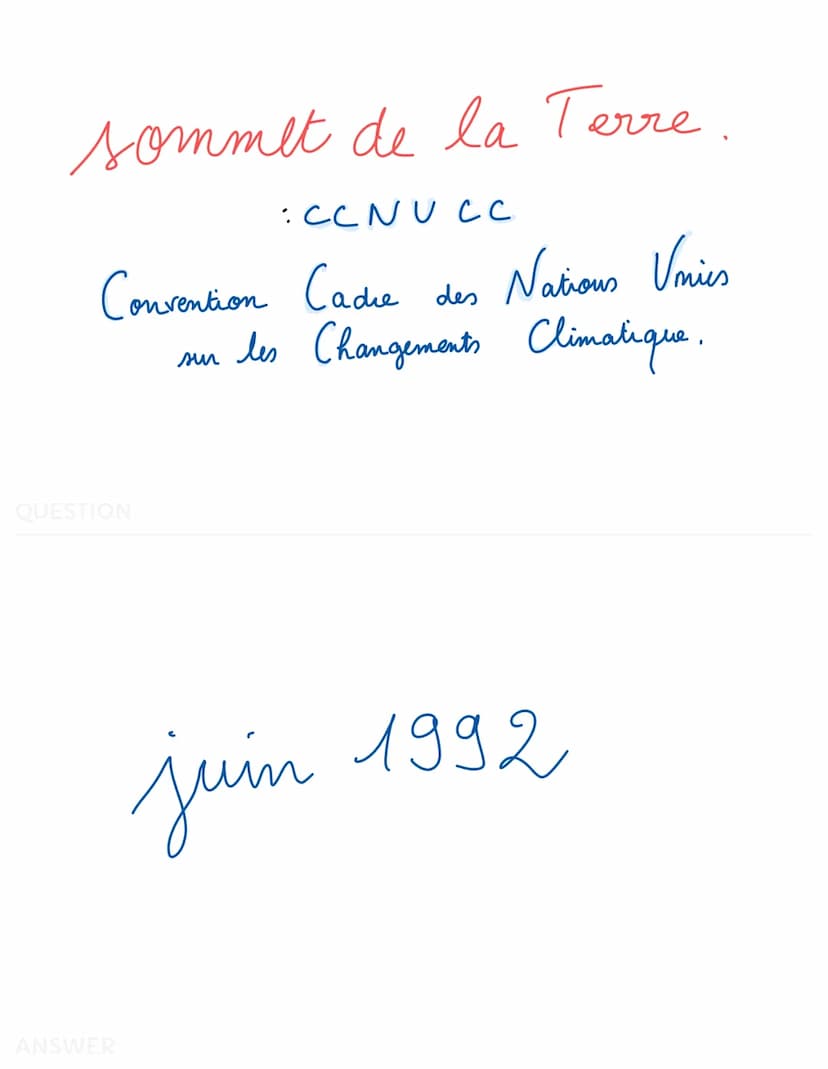 sommet de la Terre.
: CCNUCC
Convention Cadre des Nations Unies
sur les Changements Climatique.
QUESTION
juin 1992
ANSWER